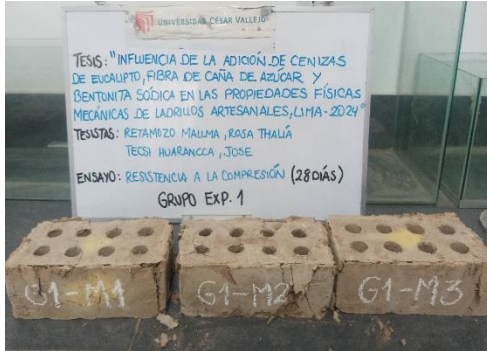 UNIVERSIDAD CÉSAR VALLEJO
TESIS: "INFLUENCIA DE LA ADICIÓN DE CENIZAS
DE EUCALIPTO, FIBRA DE CAÑA DE AZÚCAR Y
BENTONITA SÓDICA EN LAS PROPIEDADES FÍSICAS
MECÁNICAS DE LADRILLOS ARTESANALES, LIMA-2024"
TESISTAS: RETAMOZO MALLMA, ROSA THALÍA
TECSI HUARANCCA, JOSE
ENSAYO: RESISTENCIA A LA COMPRESIÓN (28 DÍAS)
GRUPO EXP. 1
G1-M1
G1-M2
G1-M3